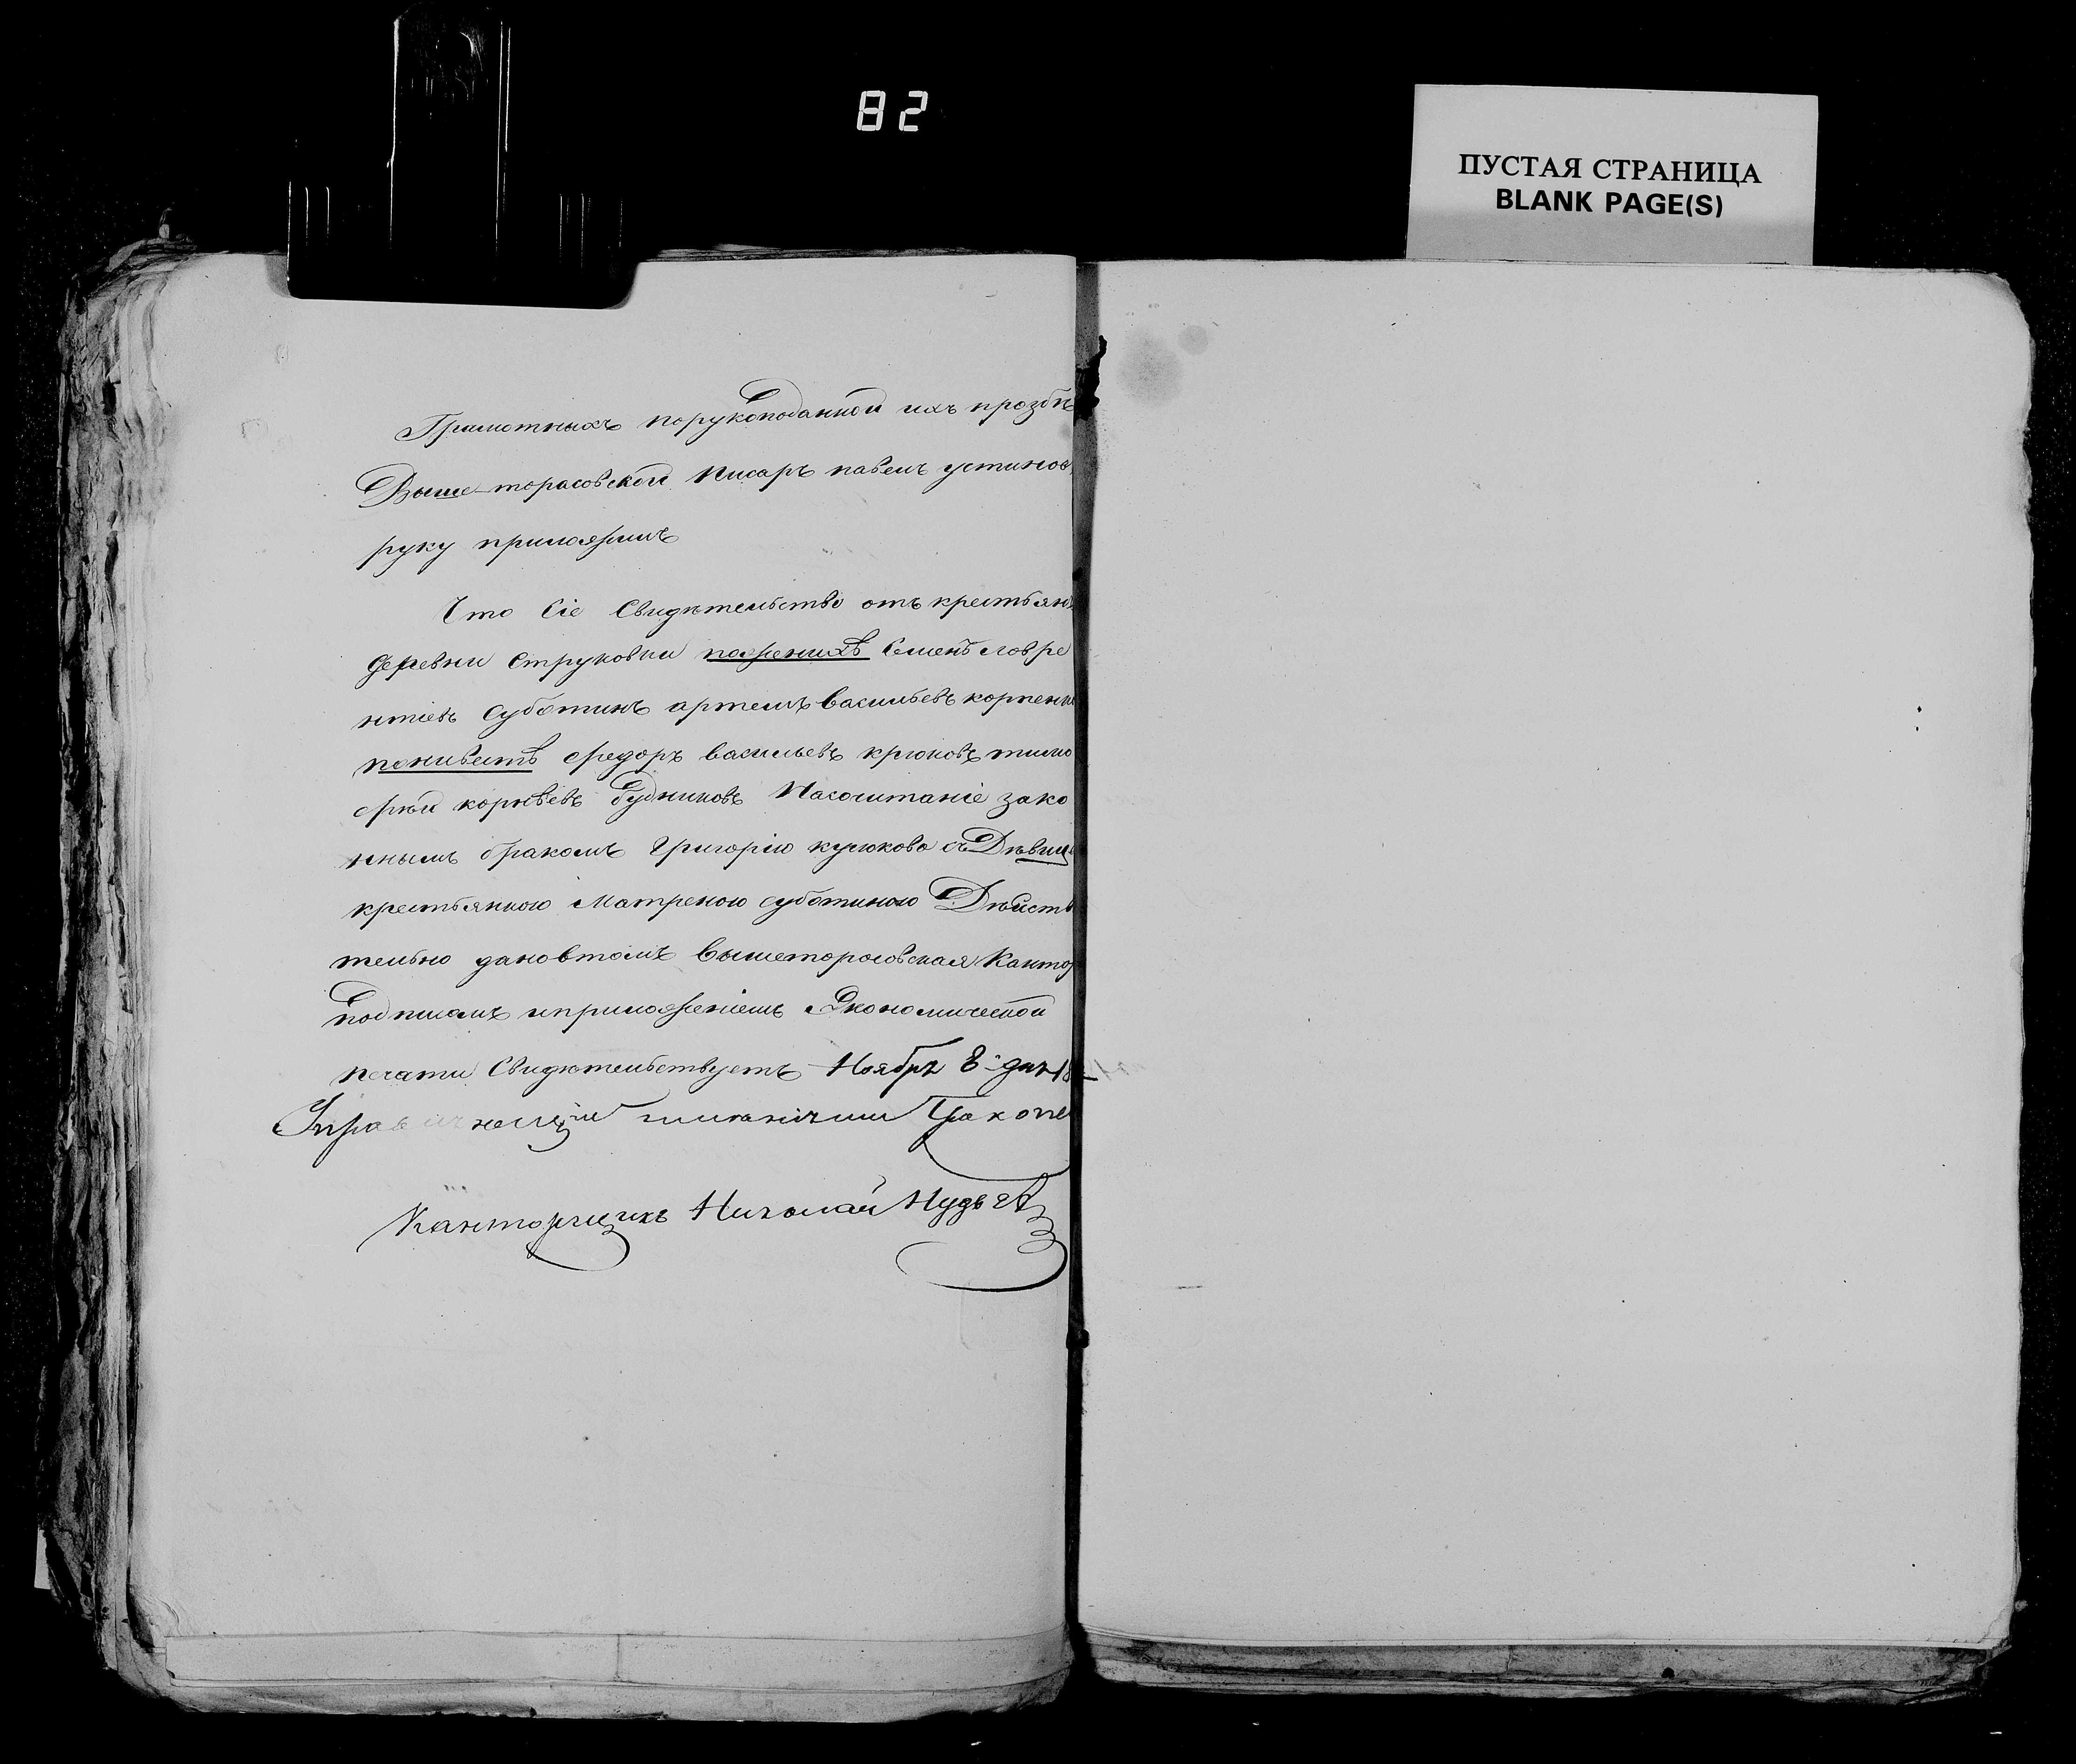 82
ПУСТАЯ СТРАНИЦА
BLANK PAGE(S)
Грамотныхъ порукоподанной ихъ прозбѣ
Выше-торасовской Писаръ павелъ устинов
руку приложилъ
Что Сіе Свидѣтельство отъ крестьян
деревни Струковки пожениху Семенъ лавре
нтіевъ Суботинъ артемъ васильевъ корпенк
поневестѣ Федоръ васильевъ крюковъ тимо
фѣй корнѣевъ Будниковъ Насочитаніе зако
ннымъ бракомъ Григорію кулюкова съ Дѣвиц
крестьянкою Матреною Суботиною Дѣйств
тельно дановтомъ вышеторосовская Кантор
Подписомъ иприложеніемъ Экономической
печати Свидѣтельствуетъ Ноябрь 8 дня 18
Управ
Канторщикъ Николай